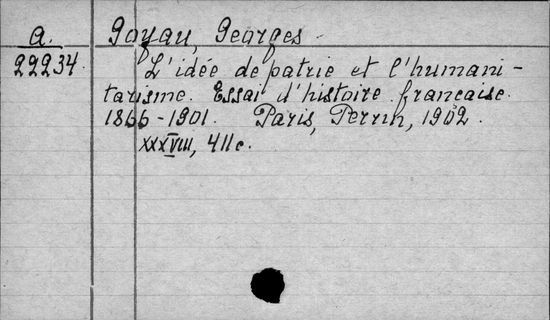 a. Goyau, Georges
22234 L'idée de patrie et l'humani-
tarisme. Essai d'histoire française.
1866-1901. Paris, Perrin, 1902.
XXXVIII, 411 c.